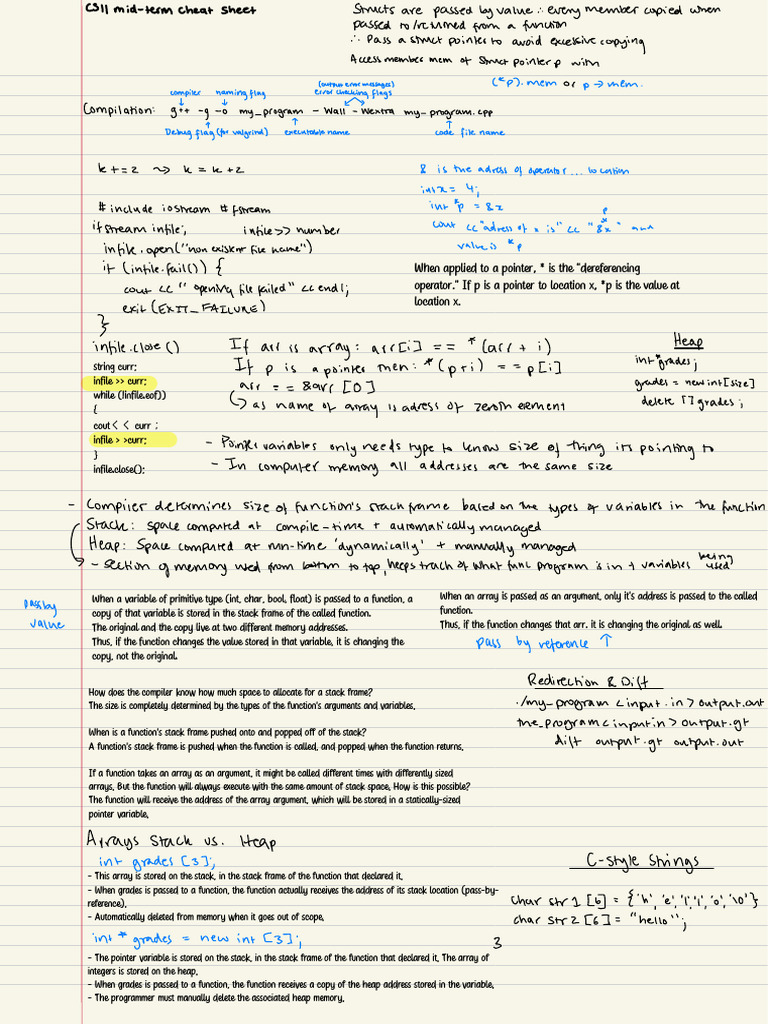 CS11 mid-term cheat sheet
Structs are passed by value ∴ every member copied when
passed to/returned from a function
∴ Pass a struct pointer to avoid excessive copying
Access member mem of struct pointer p with
(*p).mem or p → mem.
compiler naming flag (output error messages) error checking flags
Compilation: g++ -g -o my_program -Wall -Wextra my_program.cpp
Debug flag (for valgrind) executable name code file name
k += 2 ⤳ k = k + 2
& is the adress of operator ... location
int x = 4;
int *p = &x
cout << "adress of x is" << "&x" <<<
p
value is *p
# include iostream # fstream
ifstream infile; infile >> number
infile.open("non existent file name")
if (infile.fail()) {
cout << "opening file failed" << endl;
exit(EXIT_FAILURE)
}
}
infile.close()
When applied to a pointer, * is the "dereferencing
operator." If p is a pointer to location x, *p is the value at
location x.
string curr;
infile >> curr;
while (!infile.eof))
{
cout< < curr ;
infile > >curr;
}
infile.close();
If arr is array: arr[i] == *(arr + i)
If p is a pointer then: *(p+i) == p[i]
arr == &arr [0]
↳ as name of array is adress of zeroth element
Heap
int *grades;
grades = new int[size]
delete [] grades;
- Pointer variables only needs type to know size of thing its pointing to
- In computer memory all addresses are the same size
- Compiler determines size of function's stack frame based on the types of variables in the function
Stack: space computed at compile-time + automatically managed
Heap: Space computed at run-time 'dynamically' + manually managed
- section of memory used from bottom to top, keeps track of what func program is in + variables being used
pass by
value
When a variable of primitive type (int, char, bool, float) is passed to a function, a
copy of that variable is stored in the stack frame of the called function.
The original and the copy live at two different memory addresses.
Thus, if the function changes the value stored in that variable, it is changing the
copy, not the original.
When an array is passed as an argument, only it's address is passed to the called
function.
Thus, if the function changes that arr. it is changing the original as well.
pass by reference ↑
How does the compiler know how much space to allocate for a stack frame?
The size is completely determined by the types of the function's arguments and variables.
When is a function's stack frame pushed onto and popped off of the stack?
A function's stack frame is pushed when the function is called, and popped when the function returns.
If a function takes an array as an argument, it might be called different times with differently sized
arrays. But the function will always execute with the same amount of stack space. How is this possible?
The function will receive the address of the array argument, which will be stored in a statically-sized
pointer variable.
Redirection & Diff
./my_program < input.in > output.out
the_program < input.in > output.gt
diff output.gt output.out
Arrays Stack vs. Heap
int grades [3];
- This array is stored on the stack, in the stack frame of the function that declared it.
- When grades is passed to a function, the function actually receives the address of its stack location (pass-by-
reference).
- Automatically deleted from memory when it goes out of scope.
int * grades = new int [3];
- The pointer variable is stored on the stack, in the stack frame of the function that declared it. The array of
integers is stored on the heap.
- When grades is passed to a function, the function receives a copy of the heap address stored in the variable.
- The programmer must manually delete the associated heap memory.
C-Style Strings
char str1 [6] = {'h', 'e', 'l', 'l', 'o', '\0'}
char str2 [6] = "hello";
3